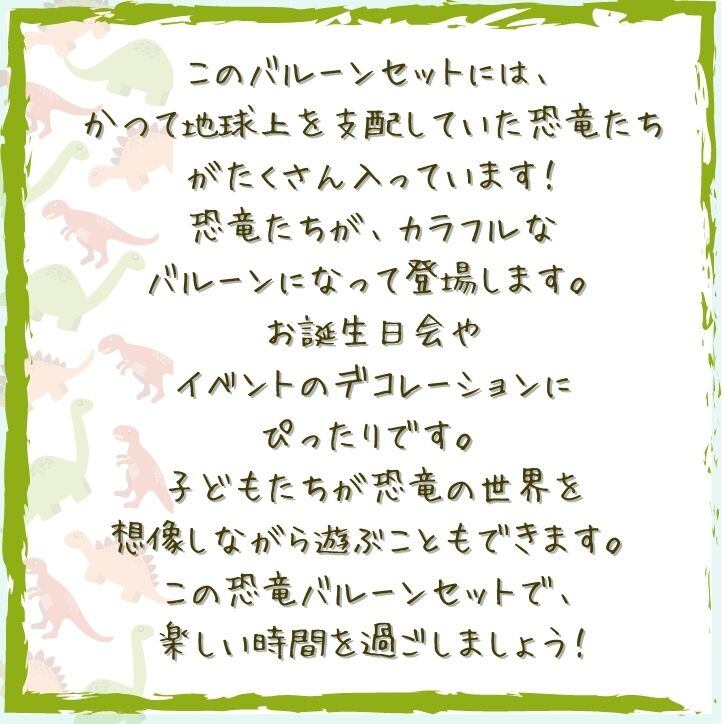 このバルーンセットには、
かつて地球上を支配していた恐竜たち
がたくさん入っています!
恐竜たちが、カラフルな
バルーンになって登場します。
お誕生日会や
イベントのデコレーションに
ぴったりです。
子どもたちが恐竜の世界を
想像しながら遊ぶこともできます。
この恐竜バルーンセットで、
楽しい時間を過ごしましょう!